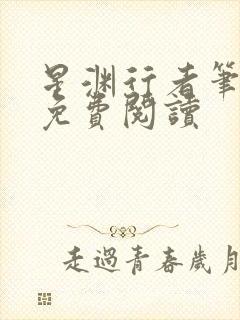 星渊行者筆
免費閱讀
走過青春歲月